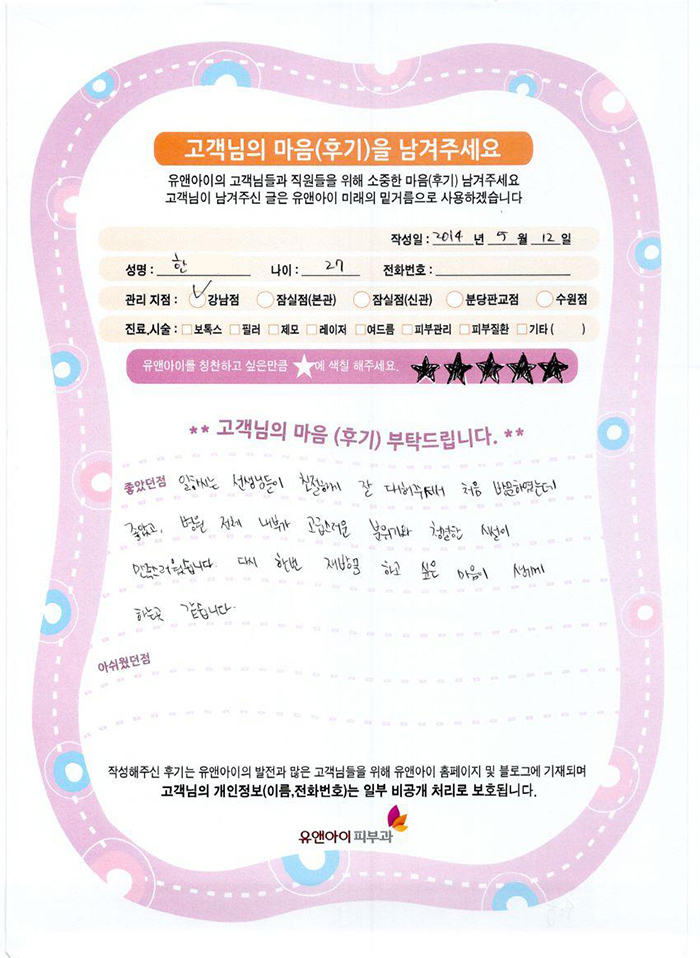 고객님의 마음(후기)을 남겨주세요
유앤아이의 고객님들과 직원들을 위해 소중한 마음(후기) 남겨주세요
고객님이 남겨주신 글은 유앤아이 미래의 밑거름으로 사용하겠습니다
작성일 : 2014 년 5 월 12 일
성명 : 한 나이 : 27 전화번호 :
관리 지점 : 강남점 잠실점(본관) 잠실점(신관) 분당판교점 수원점
진료,시술 : 보톡스 필러 제모 레이저 여드름 피부관리 피부질환 기타 ( )
유앤아이를 칭찬하고 싶은만큼 ★에 색칠 해주세요. ★★★★★
** 고객님의 마음 (후기) 부탁드립니다. **
좋았던점 일하시는 선생님들이 친절하게 잘 대해주셔서 처음 방문하였는데
좋았고, 병원 전체 내부가 고급스러운 분위기와 청결한 시설이
만족스러웠습니다. 다시 한번 재방문 하고 싶은 마음이 생기게
하는곳 같습니다.
아쉬웠던점
작성해주신 후기는 유앤아이의 발전과 많은 고객님들을 위해 유앤아이 홈페이지 및 블로그에 기재되며
고객님의 개인정보(이름,전화번호)는 일부 비공개 처리로 보호됩니다.
유앤아이피부과